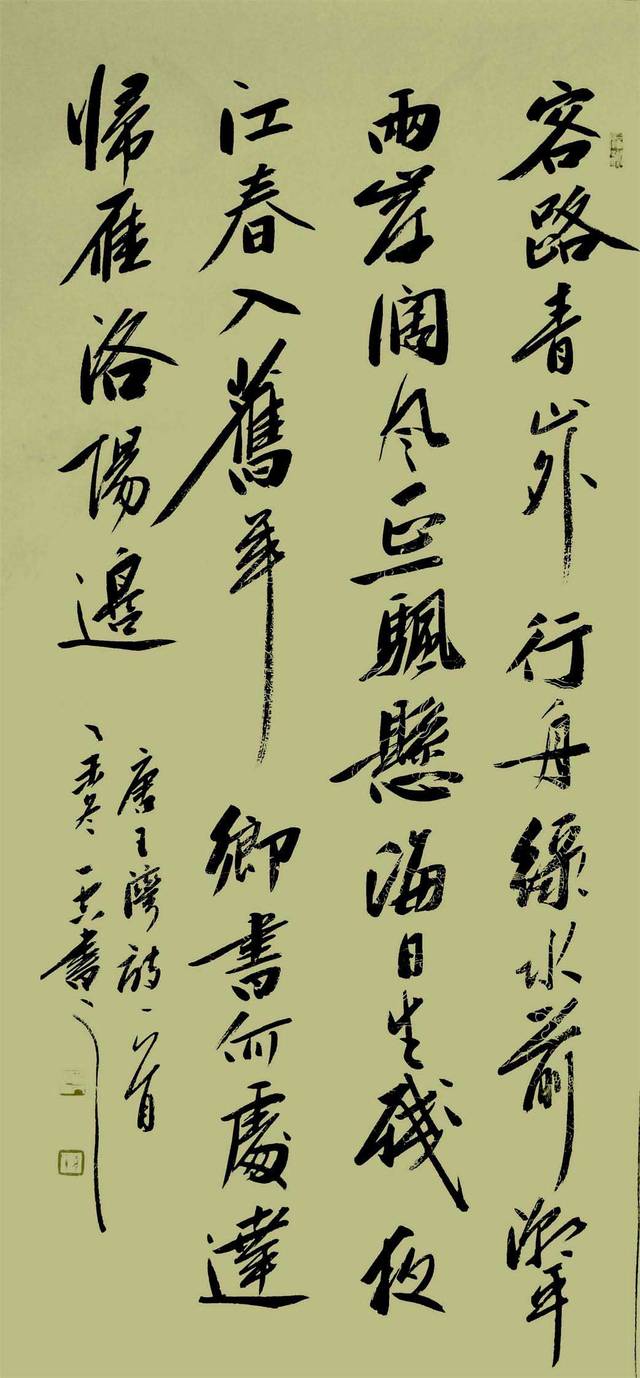 客路青山外行舟綠水前潮平
兩岸濶风正一颿懸海日生殘夜
江春入舊年鄉書何處達
歸雁洛陽邊
唐王灣詩一首
書